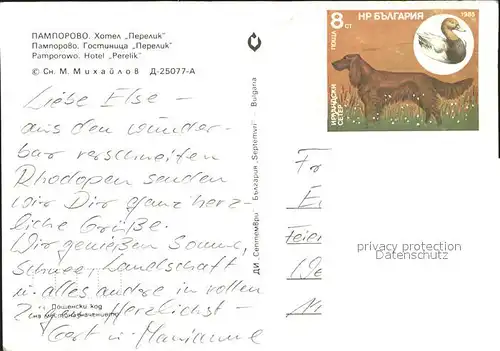 ПАМПОРОВО. Хотел „Перелик"
Пампорово. Гостиница „Перелик"
Pamporowo. Hotel „Perelik"
© Сн. М. Михайлов Д-25077-А
Liebe Else –
aus den wunder-
bar verschneiten
Rhodopen senden
wir Dir ganz herz-
liche Grüße.
Wir genießen Sonne,
Schnee, Landschaft
u. alles andere in vollen
Zügen. Herzlichst –
Gert u. Marianne
Пощенски код
на местоназначението
ДИ „Септември" България „Septemvri" – Bulgaria
НР БЪЛГАРИЯ
1985
8
СТ
ПОЩА
ИРЛАНДСКИ
СЕТЕР
Fr
E
Feier
We
privacy protection
watermark